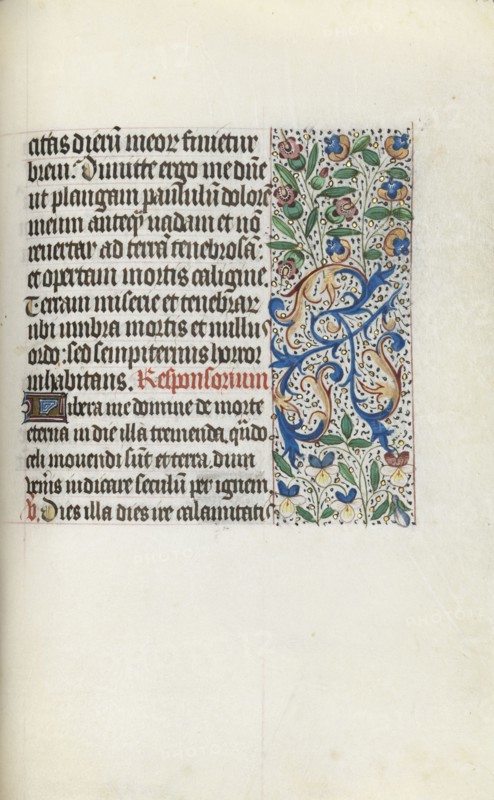 citas dierū meor finietur
brevi. Dimitte ergo me dn̄e
ut plangam paululū dolorē
meum anteq̄ vadam et nō
revertar ad terrā tenebrosā:
et opertam mortis caligine.
Terram miserie et tenebrar
ubi umbra mortis et nullus
ordo: sed sempiternus horror
inhabitans. Responsorium
Libera me domine de morte
eterna in die illa tremenda, qn̄do
celi movendi sūt et terra. dum
veneris iudicare seculū per ignem.
V. Dies illa dies ire calamitatis